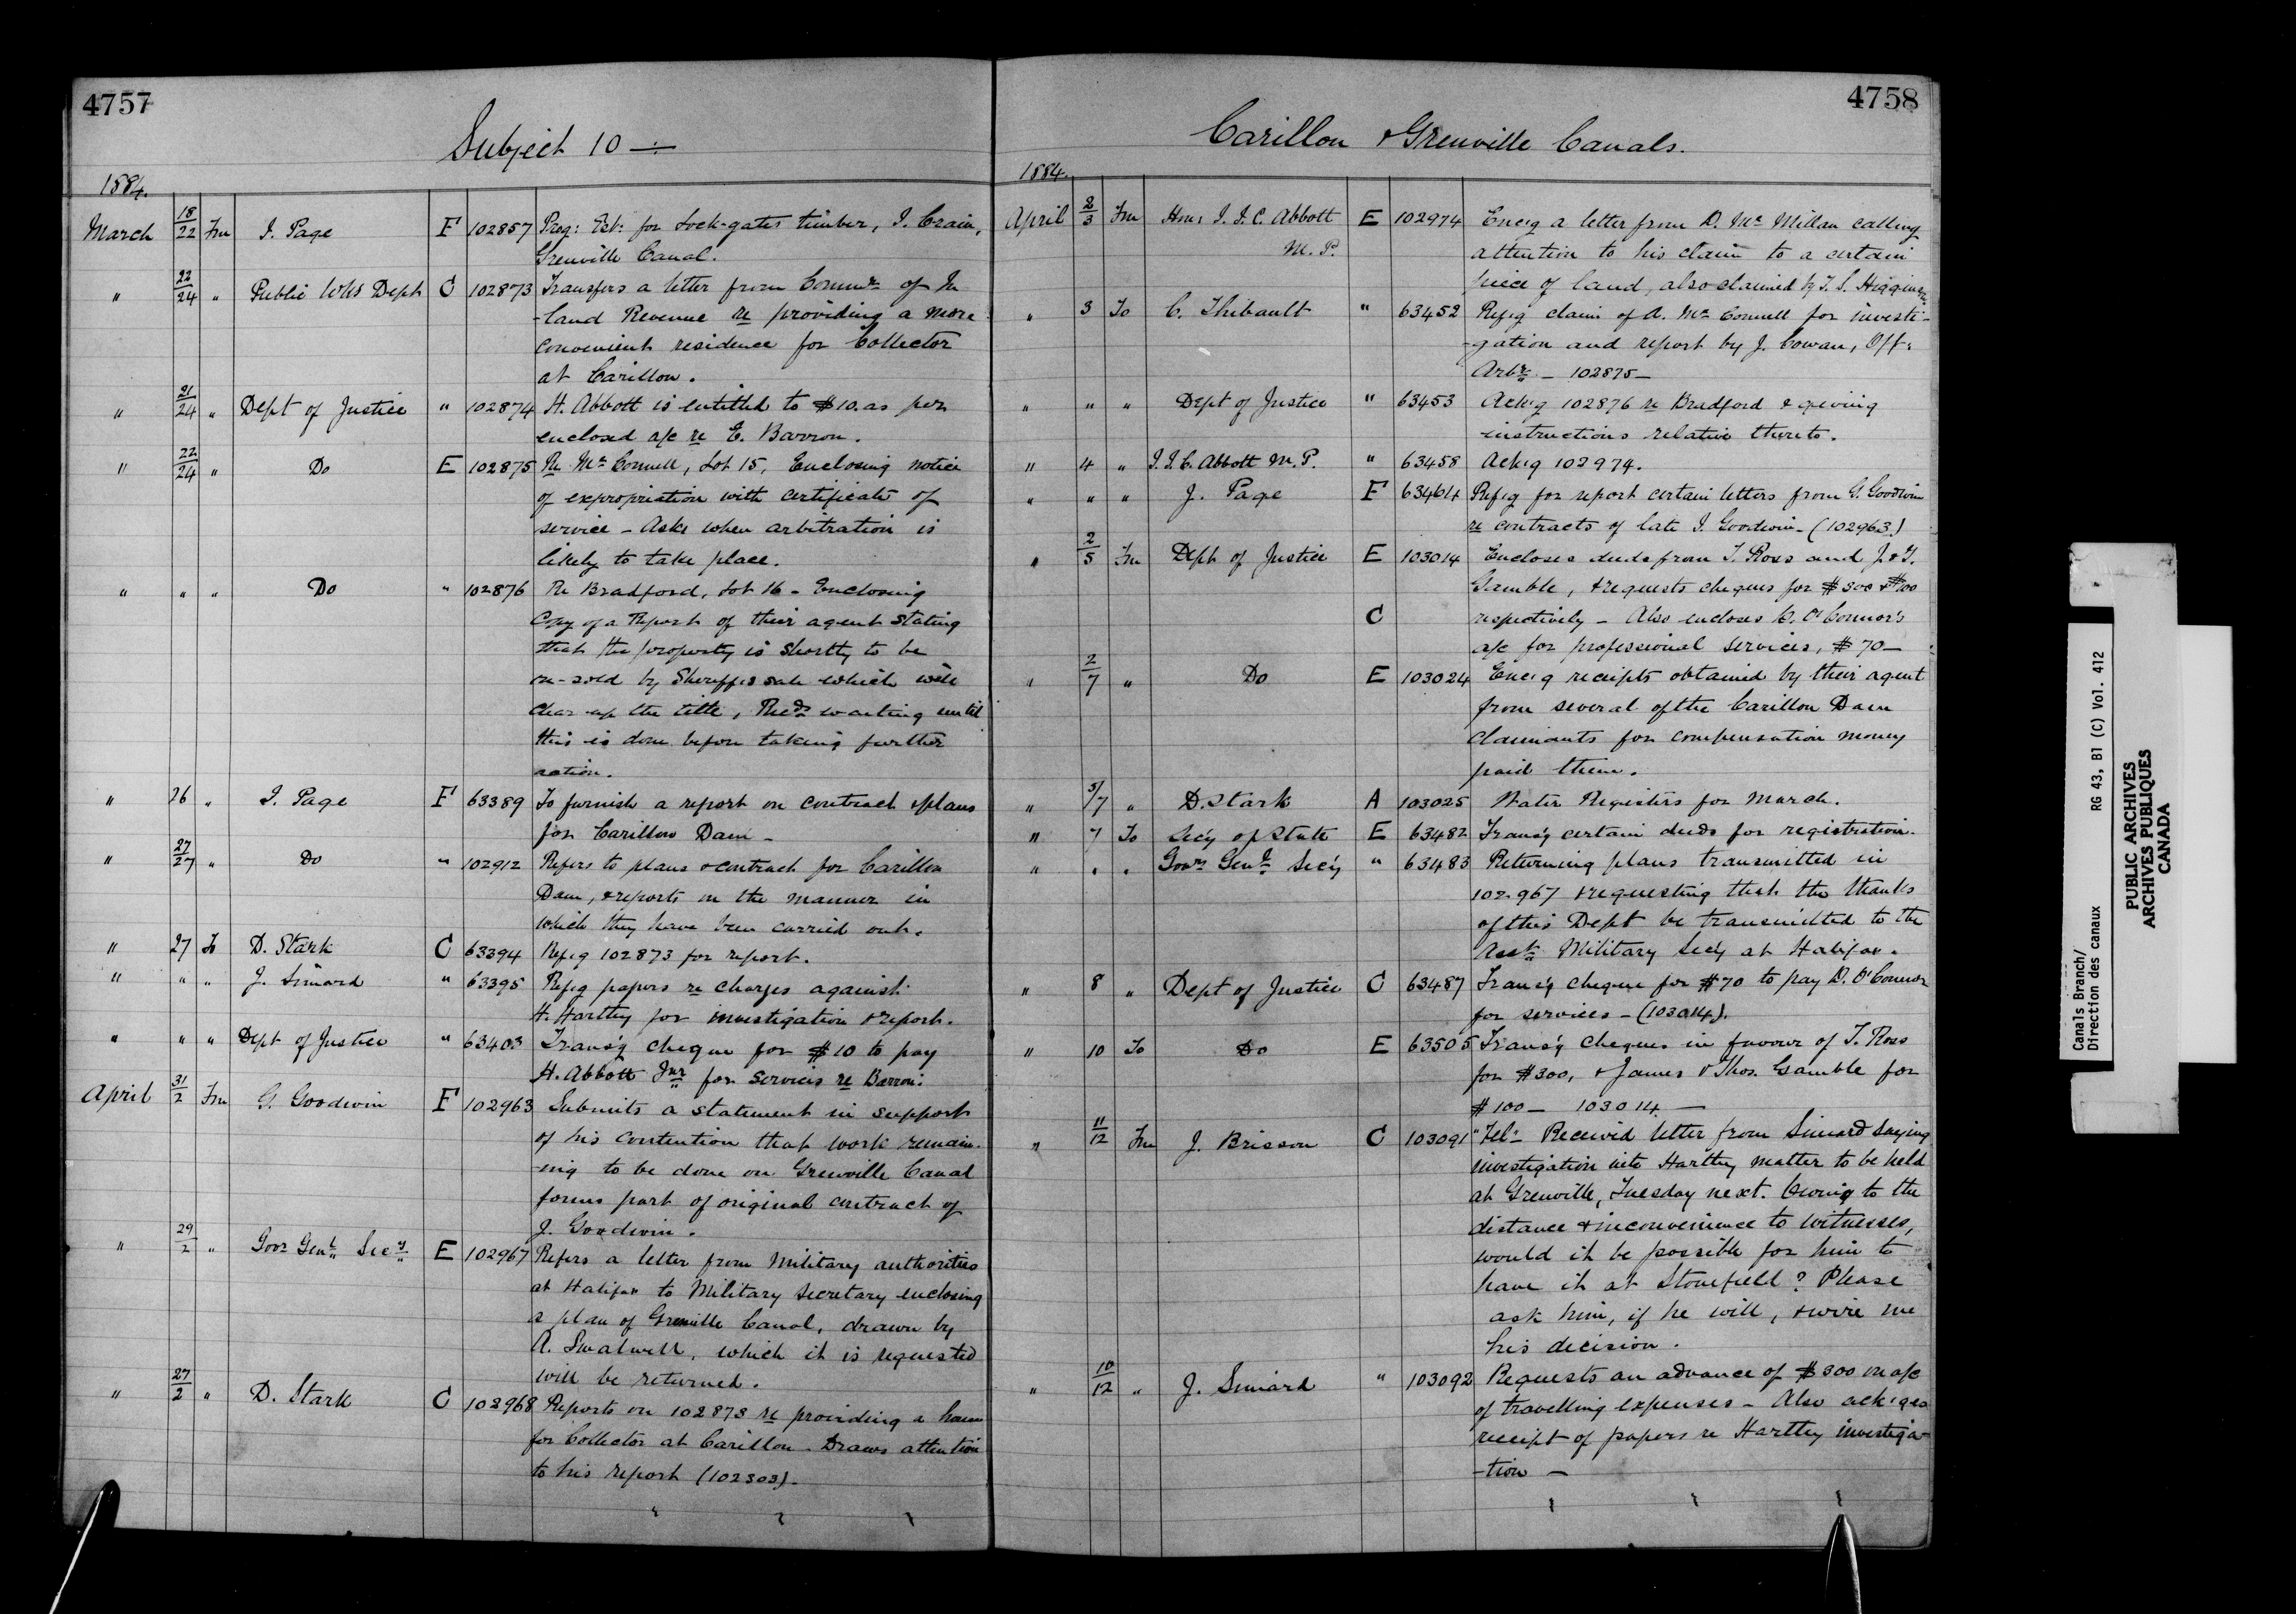 4757
Subject 10
1884.
March 18/22 Fm J. Page F 102857 Preg: Est: for Lock-gates timber, J. Crain,
Grenville Canal.
" 22/24 " Public Wks Dept C 102873 Transfers a letter from Commr of In
-land Revenue re providing a more
convenient residence for Collector
at Carillon.
" 21/24 " Dept of Justice " 102874 H. Abbott is entitled to $10. as per
enclosed a/c re E. Barron.
" 22/24 " Do E 102875 Re McConnell, Lot 15, Enclosing notice
of expropriation with certificate of
service - Asks when arbitration is
likely to take place.
" " " Do " 102876 Re Bradford, Lot 16 - Enclosing
Copy of a Report of their agent stating
that the property is shortly to be
re-sold by Sheriff's sale which will
clear up the title, waiting until
this is done before taking further
action.
" 26 " J. Page F 63389 To furnish a report on contract & plans
for Carillon Dam -
" 27/27 " Do " 102912 Refers to plans & contract for Carillon
Dam, & reports on the manner in
which they have been carried out.
" 27 To D. Stark C 63394 Ref'g 102873 for report.
" " " J. Simard " 63395 Ref'g papers re charges against
H. Harttey for investigation & report.
" " " Dept of Justice " 63403 Trans'g cheque for $10 to pay
H. Abbott Jnr for services re Barron.
April 31/2 Fm G. Goodwin F 102963 Submits a statement in support
of his contention that work remain-
-ing to be done on Grenville Canal
forms part of original contract of
J. Goodwin.
" 29/2 " Govr Genl Secy E 102967 Refers a letter from Military authorities
at Halifax to Military Secretary enclosing
a plan of Grenville Canal, drawn by
A. Swalwell, which it is requested
will be returned.
" 27/2 " D. Stark C 102968 Reports on 102873 re providing a house
for Collector at Carillon. Draws attention
to his report (102303).
4758
Carillon & Grenville Canals.
1884.
April 2/3 Fm Hon: J. J. C. Abbott E 102974 Enc'g a letter from D. McMillan calling
M.P. attention to his claim to a certain
piece of land, also claimed by T. S. Higginson
" 3 To C. Thibault " 63452 Ref'g claim of A. McConnell for investi-
-gation and report by J. Cowan, Off:
Arbr. - 102875 -
" " " Dept of Justice " 63453 Ack'g 102876 re Bradford & giving
instructions relative thereto.
" 4 " J. J. C. Abbott M.P. " 63458 Ack'g 102974.
" " " J. Page F 63464 Ref'g for report certain letters from G. Goodwin
re contracts of late J. Goodwin - (102963)
" 2/5 Fm Dept of Justice E 103014 Encloses deeds from T. Ross and J. & T.
Gamble, & requests cheques for $300 & $100
C respectively - Also encloses D. O'Connor's
a/c for professional services, $70 -
" 2/7 " Do E 103024 Enc'g receipts obtained by their agent
from several of the Carillon Dam
claimants for compensation money
paid them.
" 5/7 " D. Stark A 103025 Water Registers for March.
" 7 To Sec'y of State E 63482 Trans'g certain deeds for registration.
" " " Govr Genl Sec'y " 63483 Returning plans transmitted in
102967 & requesting that the thanks
of this Dept be transmitted to the
Asst Military Sec'y at Halifax.
" 8 " Dept of Justice C 63487 Trans'g cheque for $70 to pay D. O'Connor
for services - (103014).
" 10 To Do E 63505 Trans'g cheques in favour of T. Ross
for $300, & James & Thos. Gamble for
$100 - 103014 -
" 11/12 Fm J. Brisson C 103091 "Tel" Received letter from Simard saying
investigation into Harttey matter to be held
at Grenville, Tuesday next. Owing to the
distance & inconvenience to witnesses,
would it be possible for him to
have it at Stonefield? Please
ask him, if he will, & wire me
his decision.
" 10/12 " J. Simard " 103092 Requests an advance of $300 on a/c
of travelling expenses - Also ack'ges
receipt of papers re Harttey investiga-
-tion -
Canals Branch/
Direction des canaux RG 43, B1 (C) Vol. 412
PUBLIC ARCHIVES
ARCHIVES PUBLIQUES
CANADA